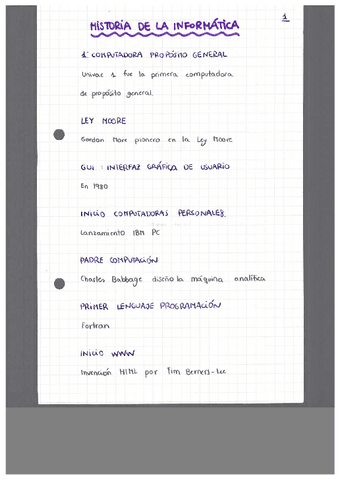 1
HISTORIA DE LA INFORMÁTICA
1ª COMPUTADORA PROPÓSITO GENERAL
Univac 1 fue la primera computadora
de propósito general.
LEY MOORE
Gordon More pionero en la Ley Moore
GUI : INTERFAZ GRÁFICA DE USUARIO
En 1980
INICIO COMPUTADORAS PERSONALES
Lanzamiento IBM PC
PADRE COMPUTACIÓN
Charles Babbage diseño la máquina analítica
PRIMER LENGUAJE PROGRAMACIÓN
Fortran
INICIO WWW
Invención HTML por Tim Berners-Lee